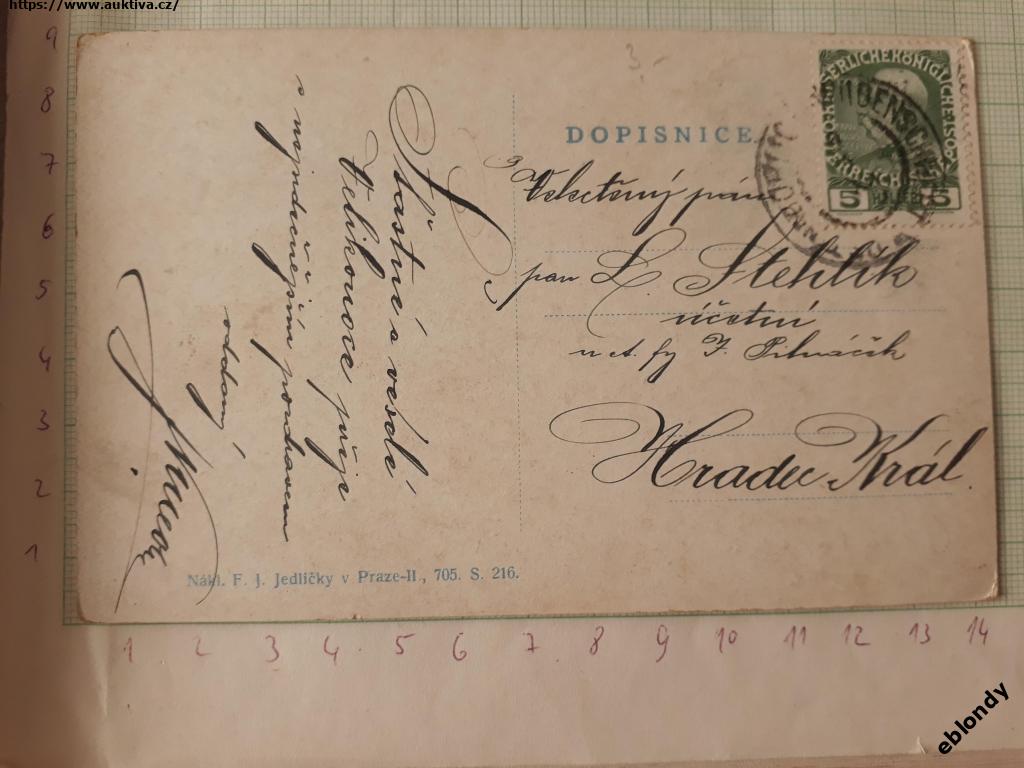 https://www.auktiva.cz/
9
8
7
6
5
4
3
2
1
3.-
DOPISNICE.
Veletěný pán
pan L. Stehlík
účetní
u ct. fy J. Pilnáčik
Hradec Král.
KAISERLICHE KÖNIGLICHE ÖST
5 5
Šťastné a veselé
Velikonoce přeje
s nejsrdečnějším pozdravem
oddaný
Nákl. F. J. Jedličky v Praze-II., 705. S. 216.
1 2 3 4 5 6 7 8 9 10 11 12 13 14
eblondy